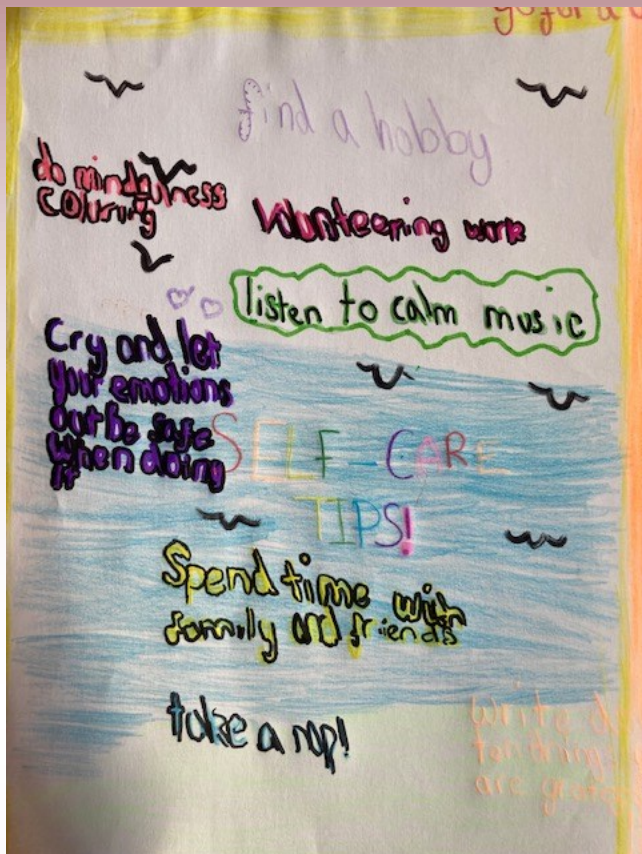 go for a
find a hobby
do mindfulness
coluring
Volunteering work
listen to calm music
Cry and let
your emotions
out be safe
when doing
it
SELF-CARE
TIPS!
Spend time with
family and friends
take a nap!
Write
ten things
are